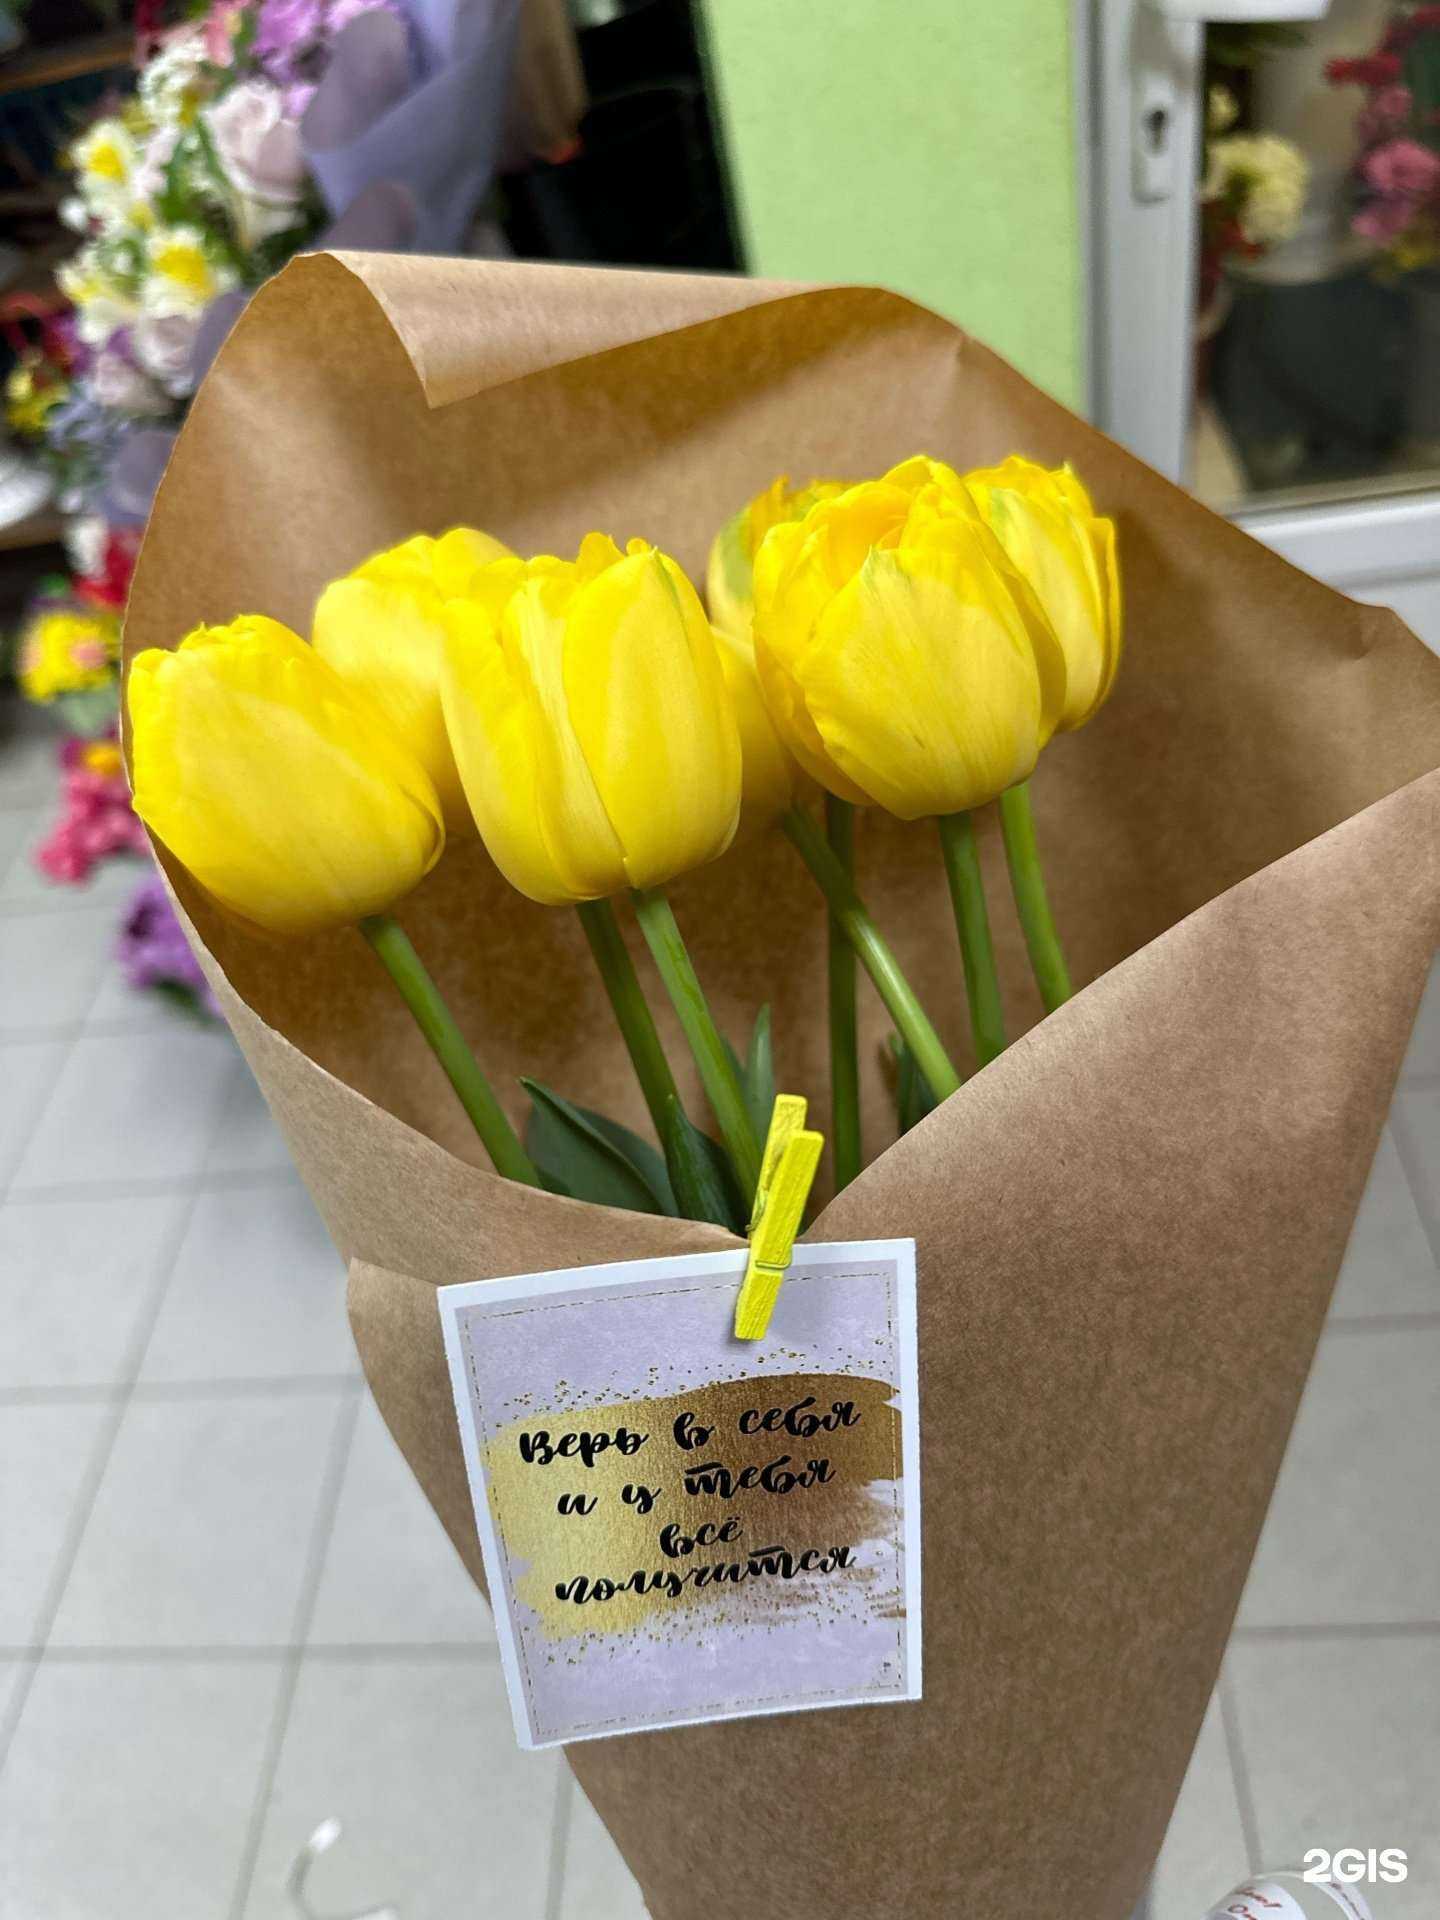 Верь в себя
и у тебя
всё
получится
2GIS